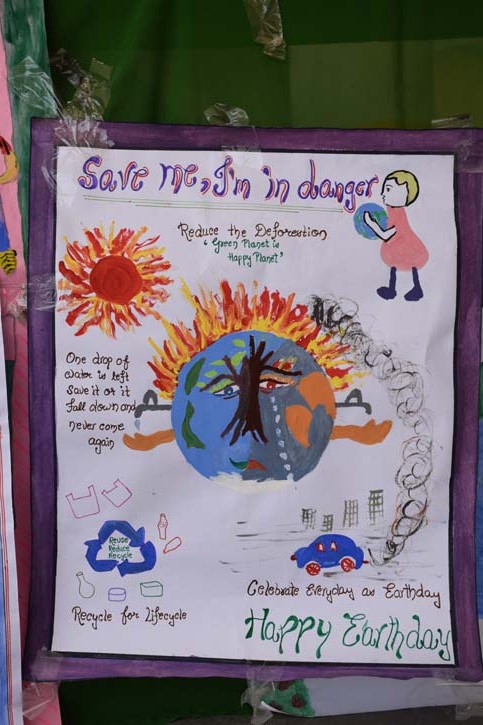 Save me, I'm in danger
Reduce the Deforestion
"Green Planet is
Happy Planet"
One drop of
water is left
Save it or it
fall down and
never come
again
Reuse
Reduce
Recycle
Recycle for Lifecycle
Celebrate Everyday as Earthday
Happy Earthday